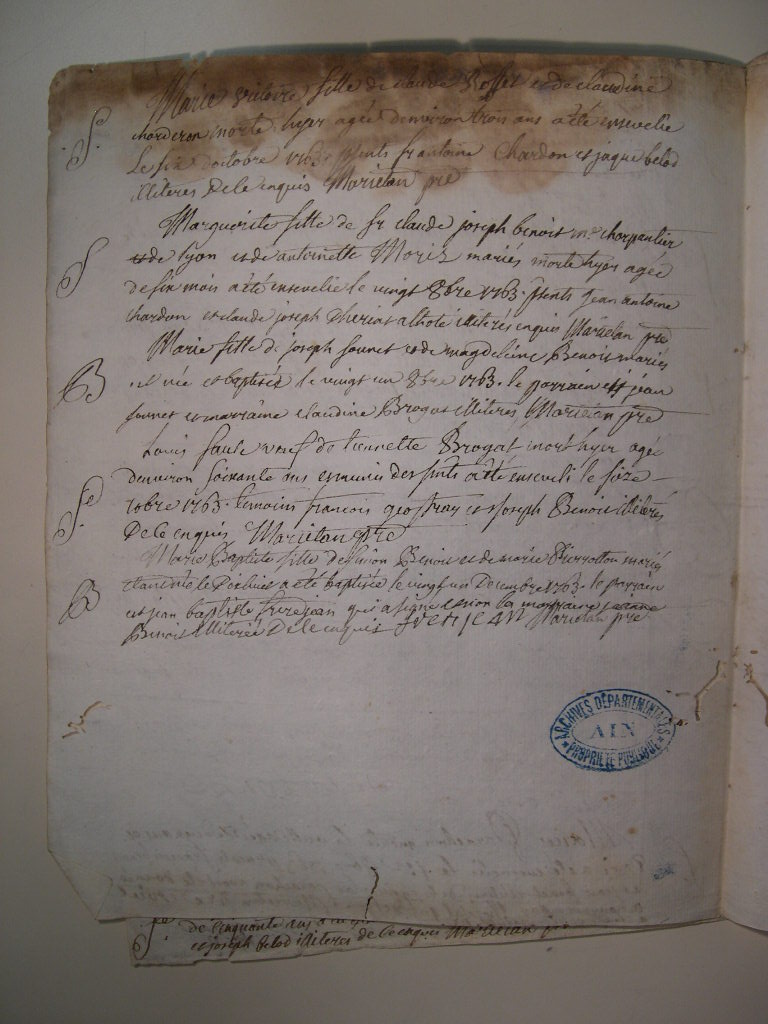 Marie victoire fille de claude Rosset et de claudine
chardon morte hyer agée denviron trois ans a été ensevelie
Le six doctobre 1763. psents fr antoine Chardon et jaque belod
illiteres De le enquis Marietan pre
Sre
Marguerite fille de sr claude joseph benoit me charpantier
de lyon et de antoinette Moris mariés morte hyer agée
de six mois a été ensevelie le vingt 8bre 1763. psents jean antoine
chardon et claude joseph illiterés enquis Marietan pre
S
Marie fille de joseph et de magdeleine Benoit mariés
née et baptisée le vingt un 8bre 1763. le parrain est jean
et marraine claudine Brogat illiteres Marietan pre
B
Louis veuf de tiennette Brogat mort hyer agé
denviron soixante ans et muni des a été enseveli le
tobre 1763. temoins francois geoffray et joseph Benoit illiterés
De le enquis Marietan pre
Sre
Marie Baptiste fille de Benoit et de marie mariés
a été baptisée le vingt un Decembre 1763. le parrain
est jean baptiste frerejean qui a signé et non la marraine jeanne
Benoit illiterée De le enquis Marietan pre
B
ARCHIVES DÉPARTEMENTALES
AIN
PROPRIÉTÉ PUBLIQUE
Sre
de cinquante ans a
et joseph belod illiteres de le enquis Marietan pre